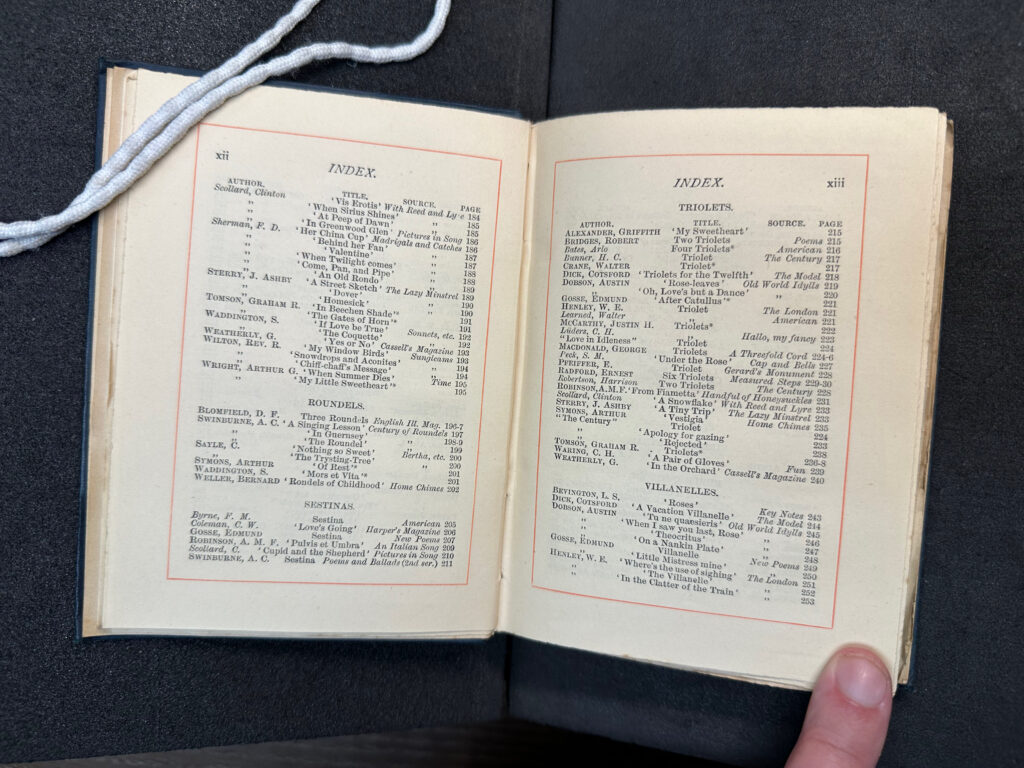 xii
INDEX.
AUTHOR. TITLE. SOURCE. PAGE
Scollard, Clinton 'Vis Erotis' With Reed and Lyre 184
„ 'When Sirius Shines' „ 185
„ 'At Peep of Dawn' „ 185
„ 'In Greenwood Glen' Pictures in Song 186
Sherman, F. D. 'Her China Cup' Madrigals and Catches 186
„ 'Behind her Fan' „ 187
„ 'Valentine' „ 187
„ 'When Twilight comes' „ 188
„ 'Come, Pan, and Pipe' „ 188
STERRY, J. ASHBY 'An Old Rondo' „ 189
„ 'A Street Sketch' The Lazy Minstrel 189
„ 'Dover' „ 190
TOMSON, GRAHAM R. 'Homesick' „ 190
„ 'In Beechen Shade'* 191
WADDINGTON, S. 'The Gates of Horn'* 191
„ 'If Love be True' Sonnets, etc. 192
WEATHERLY, G. 'The Coquette' 192
„ 'Yes or No' Cassell's Magazine 193
WILTON, REV. R. 'My Window Birds' Sungleams 193
„ 'Snowdrops and Aconites' „ 194
„ 'Chiff-chaff's Message' „ 194
WRIGHT, ARTHUR G. 'When Summer Dies' Time 195
„ 'My Little Sweetheart'* 195
ROUNDELS.
BLOMFIELD, D. F. Three Roundels English Ill. Mag. 196-7
SWINBURNE, A. C. 'A Singing Lesson' Century of Roundels 197
„ 'In Guernsey' „ 198-9
„ 'The Roundel' „ 199
SAYLE, C. 'Nothing so Sweet' Bertha, etc. 200
„ 'The Trysting-Tree' „ 200
SYMONS, ARTHUR 'Of Rest'* 201
WADDINGTON, S. 'Mors et Vita' 201
WELLER, BERNARD 'Rondels of Childhood' Home Chimes 202
SESTINAS.
Byrne, F. M. Sestina American 205
Coleman, C. W. 'Love's Going' Harper's Magazine 206
GOSSE, EDMUND Sestina New Poems 207
ROBINSON, A. M. F. 'Pulvis et Umbra' An Italian Song 209
Scollard, C. 'Cupid and the Shepherd' Pictures in Song 210
SWINBURNE, A. C. Sestina Poems and Ballads (2nd ser.) 211
INDEX.
xiii
TRIOLETS.
AUTHOR. TITLE. SOURCE. PAGE
ALEXANDER, GRIFFITH 'My Sweetheart' 215
BRIDGES, ROBERT Two Triolets Poems 215
Bates, Arlo Four Triolets* American 216
Bunner, H. C. Triolet The Century 217
CRANE, WALTER Triolet* 217
DICK, COTSFORD 'Triolets for the Twelfth' The Model 218
DOBSON, AUSTIN 'Rose-leaves' Old World Idylls 219
„ 'Oh, Love's but a Dance' „ 220
GOSSE, EDMUND 'After Catullus'* 221
HENLEY, W. E. Triolet The London 221
Learned, Walter „ American 221
McCARTHY, JUSTIN H. Triolets* 222
Lüders, C. H. „ Hallo, my fancy 223
"Love in Idleness" Triolet 224
MACDONALD, GEORGE Triolets A Threefold Cord 224-6
Peck, S. M. 'Under the Rose' Cap and Bells 227
PFEIFFER, E. Triolet Gerard's Monument 228
RADFORD, ERNEST Six Triolets Measured Steps 229-30
Robertson, Harrison Two Triolets The Century 228
ROBINSON, A.M.F. 'From Fiametta' Handful of Honeysuckles 231
Scollard, Clinton 'A Snowflake' With Reed and Lyre 233
STERRY, J. ASHBY 'A Tiny Trip' The Lazy Minstrel 233
SYMONS, ARTHUR 'Vestigia' Home Chimes 235
"The Century" Triolet 224
„ 'Apology for gazing' 233
„ 'Rejected' 238
TOMSON, GRAHAM R. Triolets* 236-8
WARING, C. H. 'A Pair of Gloves' Fun 239
WEATHERLY, G. 'In the Orchard' Cassell's Magazine 240
VILLANELLES.
BEVINGTON, L. S. 'Roses' Key Notes 243
DICK, COTSFORD 'A Vacation Villanelle' The Model 244
DOBSON, AUSTIN 'Tu ne quæsieris' Old World Idylls 245
„ 'When I saw you last, Rose' „ 246
„ 'Theocritus' „ 247
„ 'On a Nankin Plate' „ 248
GOSSE, EDMUND Villanelle New Poems 249
„ 'Little Mistress mine' „ 250
HENLEY, W. E. 'Where's the use of sighing' The London 251
„ 'The Villanelle' „ 252
„ 'In the Clatter of the Train' „ 253